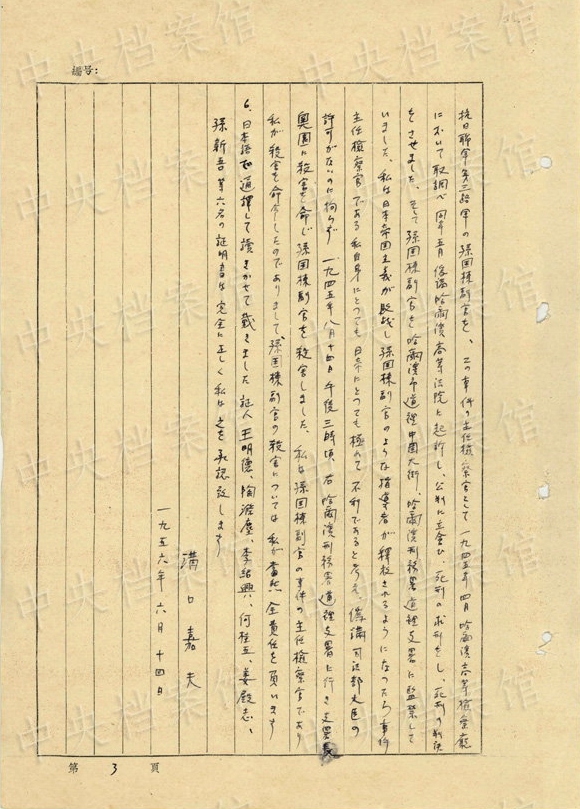 編号:
抗日聯軍第三路軍の孫国棟副官を、この事件の主任検察官として一九四五年四月哈爾濱高等検察庁
において取調べ同年五月偽満哈爾濱高等法院に起訴し、公判に立会ひ、死刑の求刑をし、死刑の判決
をさせました、そして孫国棟副官を哈爾濱市道裡中国大街、哈爾濱刑務署道裡支署に監禁して
いました、私は日本帝国主義が敗戦し孫国棟副官のような指導者が釈放されるようになつたら事件
主任検察官である私自身にとつても日帝にとつても極めて不利であると考え、偽満司法部大臣の
許可がないのに拘らず一九四五年八月十四日午後三時頃、右哈爾濱刑務署道裡支署に行き支署長
奥園に殺害を命じ孫国棟副官を殺害しました、私は孫国棟副官の事件の主任検察官であり
私が殺害を命令したのでありまして孫国棟副官の殺害については私が当然全責任を負います
6、日本語で通訳して読みきかせて戴きました証人王明徳、陶 、李紹興、何桂五、姜殿志、
孫新吾等六名の証明書は完全に正しく私は之を承認致します
溝口嘉夫
一九五六年六月十四日
第 3 頁
中央档案馆